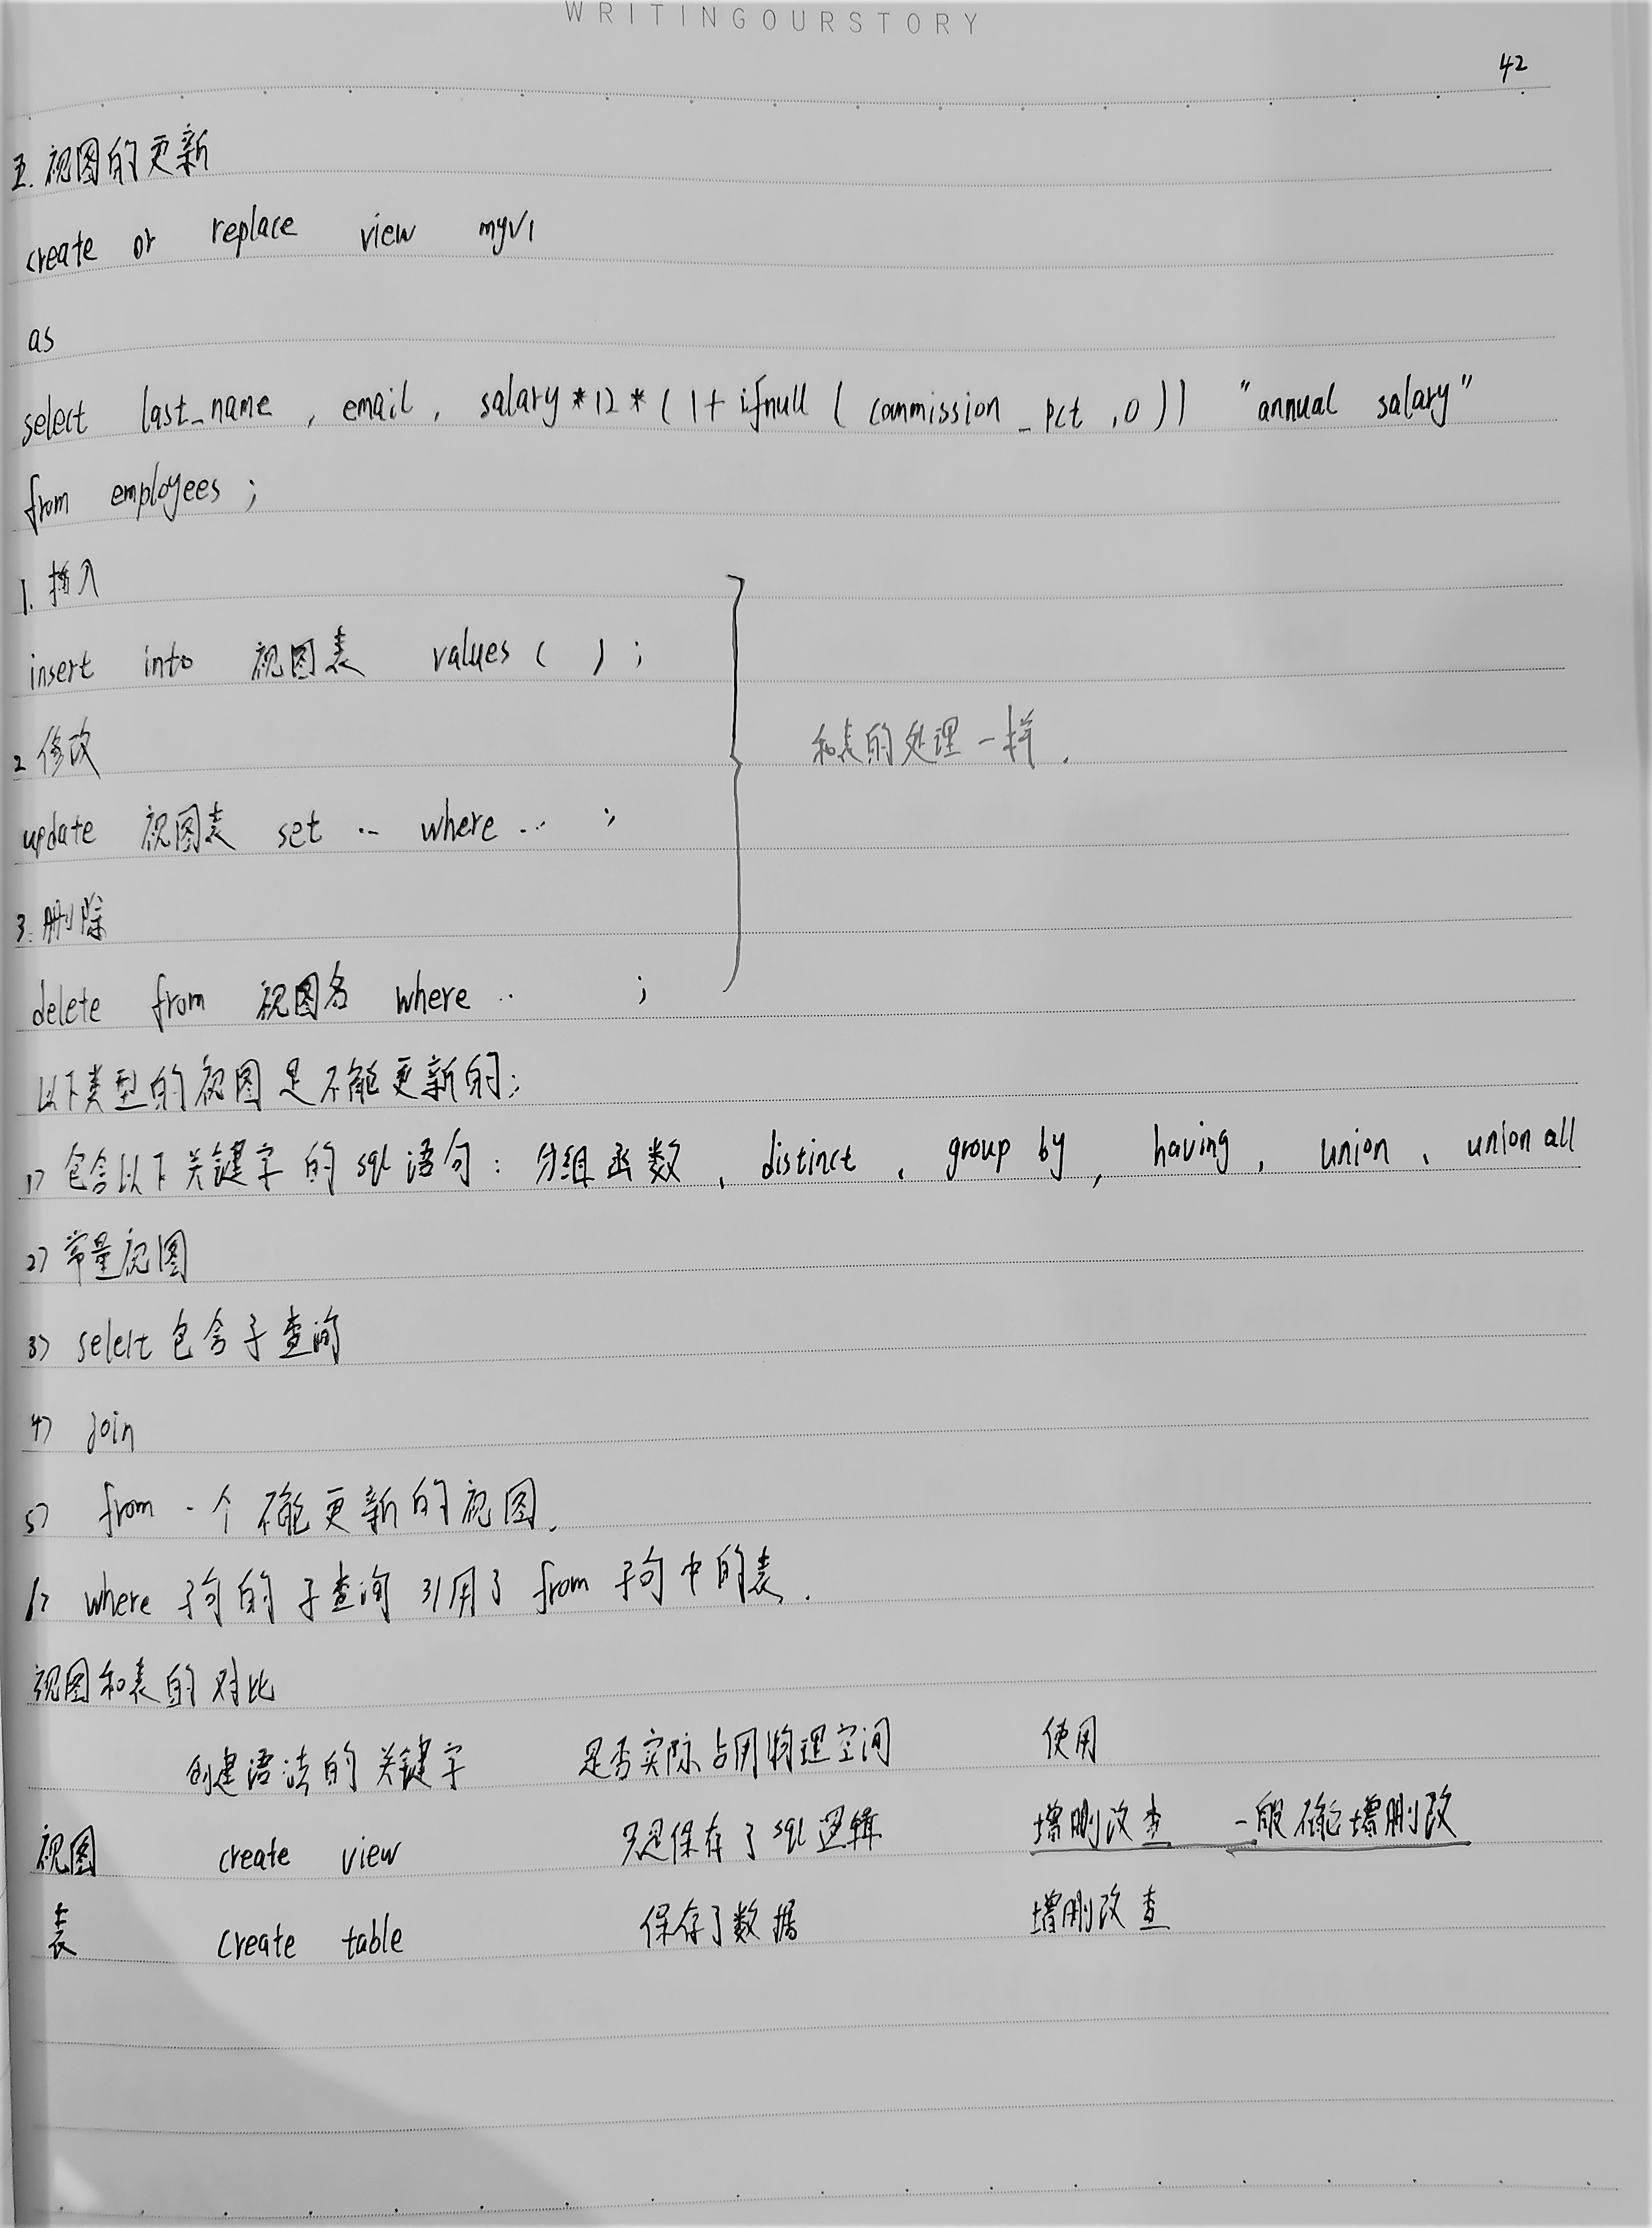 WRITINGOURSTORY
42
五.视图的更新
create or replace view myv1
as
select last_name , email , salary*12*(1+ifnull(commission_pct ,0)) "annual salary"
from employees ;
1. 插入
insert into 视图表 values ( ) ;
2 修改
和表的处理一样.
update 视图表 set .. where ... ;
3. 删除
delete from 视图名 where .. ;
以下类型的视图是不能更新的;
1> 包含以下关键字的sql语句: 分组函数 、distinct 、group by , having , union 、union all
2> 常量视图
3> select 包含子查询
4> join
5> from 一个不能更新的视图.
6> where 子句的子查询引用了 from 子句中的表.
视图和表的对比
创建语法的关键字 是否实际占用物理空间 使用
视图 create view 只是保存了sql逻辑 增删改查 一般不能增删改
表 create table 保存了数据 增删改查